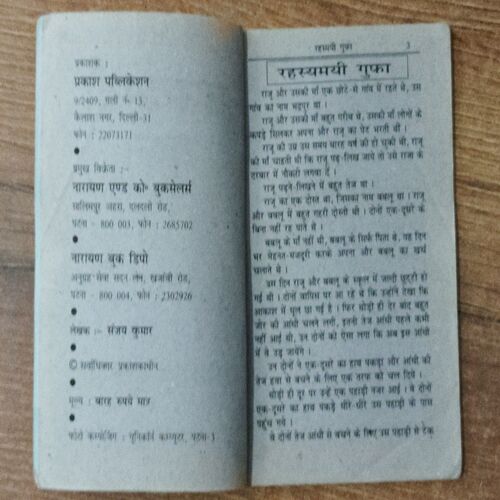 प्रकाशक :
प्रकाश पब्लिकेशन
9/2409, गली नं. 13,
कैलाश नगर, दिल्ली-31
फोन : 22073171
प्रमुख विक्रेता :-
नारायण एण्ड को॰ बुकसेलर्स
सालिमपुर अहरा, दलदली रोड,
पटना - 800 003, फोन : 2685702
नारायण बुक डिपो
अनुग्रह सेवा सदन लेन, खजांची रोड,
पटना - 800 004, फोन : 2302926
लेखक :- संजय कुमार
© सर्वाधिकार प्रकाशकाधीन
मूल्य : बारह रुपये मात्र
फोटो कम्पोजिंग : यूनिकॉर्न कम्प्यूटर, पटना-3
रहस्मयी गुफा 3
रहस्यमयी गुफा
राजू और उसकी माँ एक छोटे-से गाँव में रहते थे, उस
गाँव का नाम भदपुर था।
राजू और उसकी माँ बहुत गरीब थे, उसकी माँ लोगों के
कपड़े सिलकर अपना और राजू का पेट भरती थी।
राजू की उम्र उस समय बारह वर्ष की हो चुकी थी, राजू
की माँ चाहती थी कि राजू पढ़-लिख जाये तो उसे राजा के
दरबार में नौकरी लगवा दें।
राजू पढ़ने-लिखने में बहुत तेज था।
राजू का एक दोस्त था, जिसका नाम बबलू था। राजू
और बबलू में बहुत गहरी दोस्ती थी। दोनों एक-दूसरे के
बिना नहीं रह पाते थे।
बबलू के माँ नहीं थी, बबलू के सिर्फ पिता थे, वह दिन
भर मेहनत-मजदूरी करके अपना और बबलू का खर्च
चलाते थे।
उस दिन राजू और बबलू के स्कूल में जल्दी छुट्टी हो
गई थी। दोनों वापिस घर आ रहे थे कि उन्होंने देखा कि
आकाश में धूल छा गई है। फिर थोड़ी ही देर बाद बहुत
जोर की आंधी चलने लगी, इतनी तेज आंधी पहले कभी
नहीं आई थी, उन दोनों को ऐसा लगा कि अब इस आंधी
में वे उड़ जायेंगे।
उन दोनों ने एक-दूसरे का हाथ पकड़ा और आंधी की
तेज हवा से बचने के लिए एक तरफ को चल दिये।
थोड़ी ही दूर पर उन्हें एक पहाड़ी नजर आई। वे दोनों
एक-दूसरे का हाथ पकड़े धीरे-धीरे उस पहाड़ी के पास
पहुंच गये।
वे दोनों तेज आंधी से बचने के लिए उस पहाड़ी से टेक